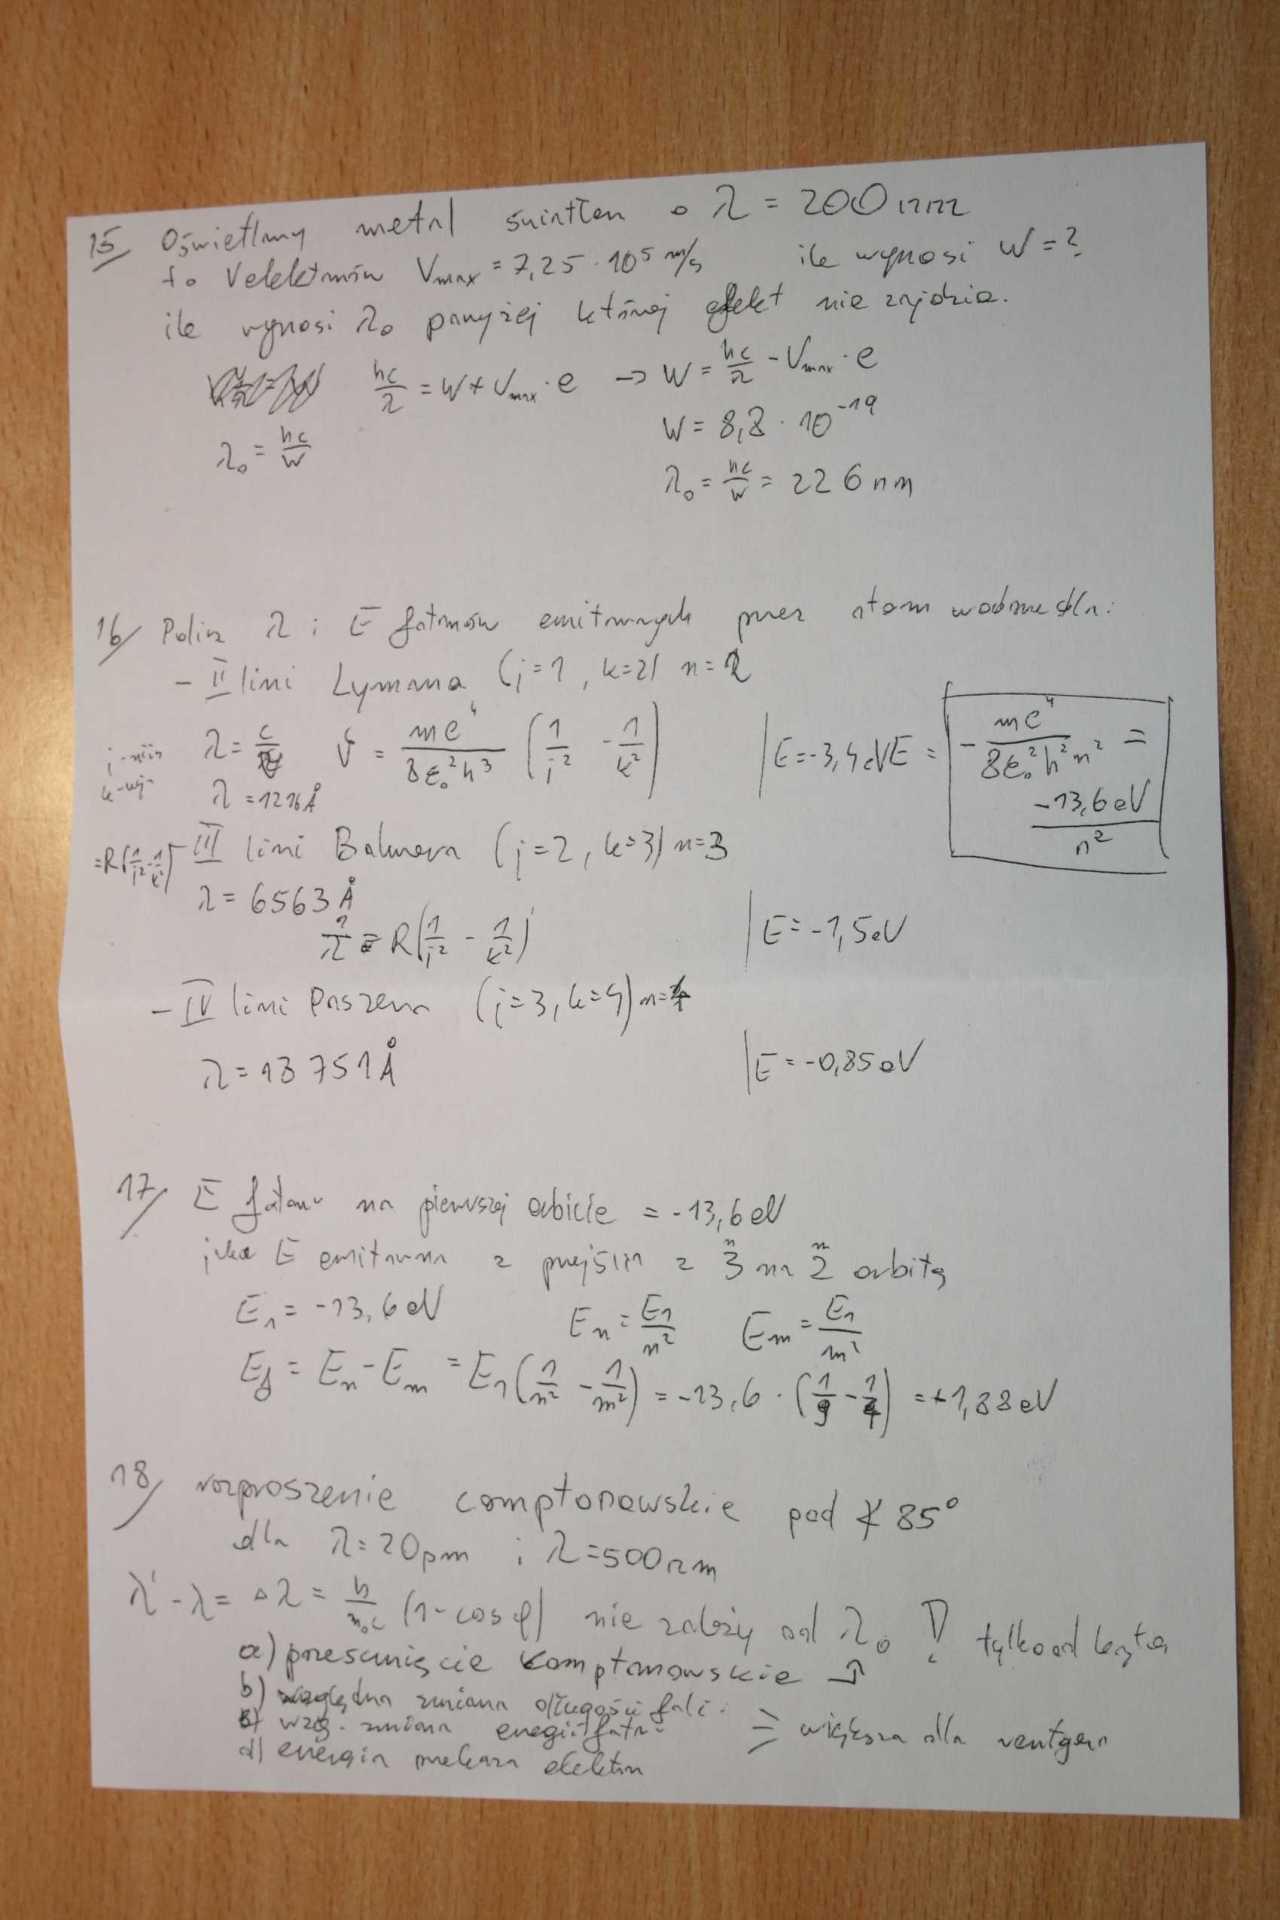 15/ Oświetlamy metal światłem o λ = 200 nm
to V elektronów Vmax = 7,25 · 10⁵ m/s ile wynosi W = ?
ile wynosi λ₀ powyżej której efekt nie zajdzie.
hc/λ = W + Vmax · e → W = hc/λ - Vmax · e
W = 8,8 · 10⁻¹⁹
λ₀ = hc/W
λ₀ = hc/W = 226 nm
16/ Policz λ i E fotonów emitowanych przez atom wodoru dla:
- II lini Lymana (j=1, k=2) n=2
λ = c/ν ν = me⁴/8ε₀²h³ (1/j² - 1/k²) | E = -3,4 eV E = - me⁴/8ε₀²h²n² = -13,6 eV/n²
λ = 1216 Å
= R(1/j² - 1/k²) III lini Balmera (j=2, k=3) n=3
λ = 6563 Å
1/λ = R(1/j² - 1/k²) | E = -1,5 eV
- IV lini Paszena (j=3, k=4) n=4
λ = 18 751 Å | E = -0,85 eV
17/ E fotonu na pierwszej orbicie = -13,6 eV
jaka E emitowana z przejścia z 3 na 2 orbitę
n m
E₁ = -13,6 eV En = E₁/n² Em = E₁/m²
Ef = En - Em = E₁(1/n² - 1/m²) = -13,6 · (1/9 - 1/4) = +1,88 eV
18/ rozproszenie comptonowskie pod ∢ 85°
dla λ = 20 pm i λ = 500 nm
λ' - λ = Δλ = h/m₀c (1 - cos φ) nie zależy od λ₀ ! tylko od kąta
a) przesunięcie komptonowskie
b) względna zmiana długości fali
c) wzg. zmiana energii foto.
⇒ większa dla rentgena
d) energia elektron